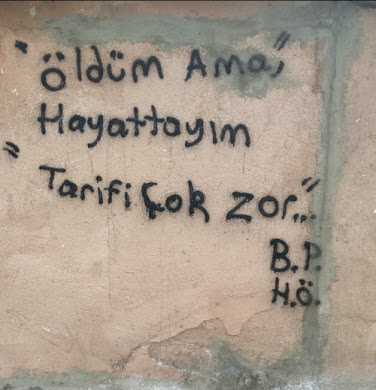 "Öldüm Ama,"
Hayattayım
"Tarifi Çok zor..."
B.P.
H.Ö.